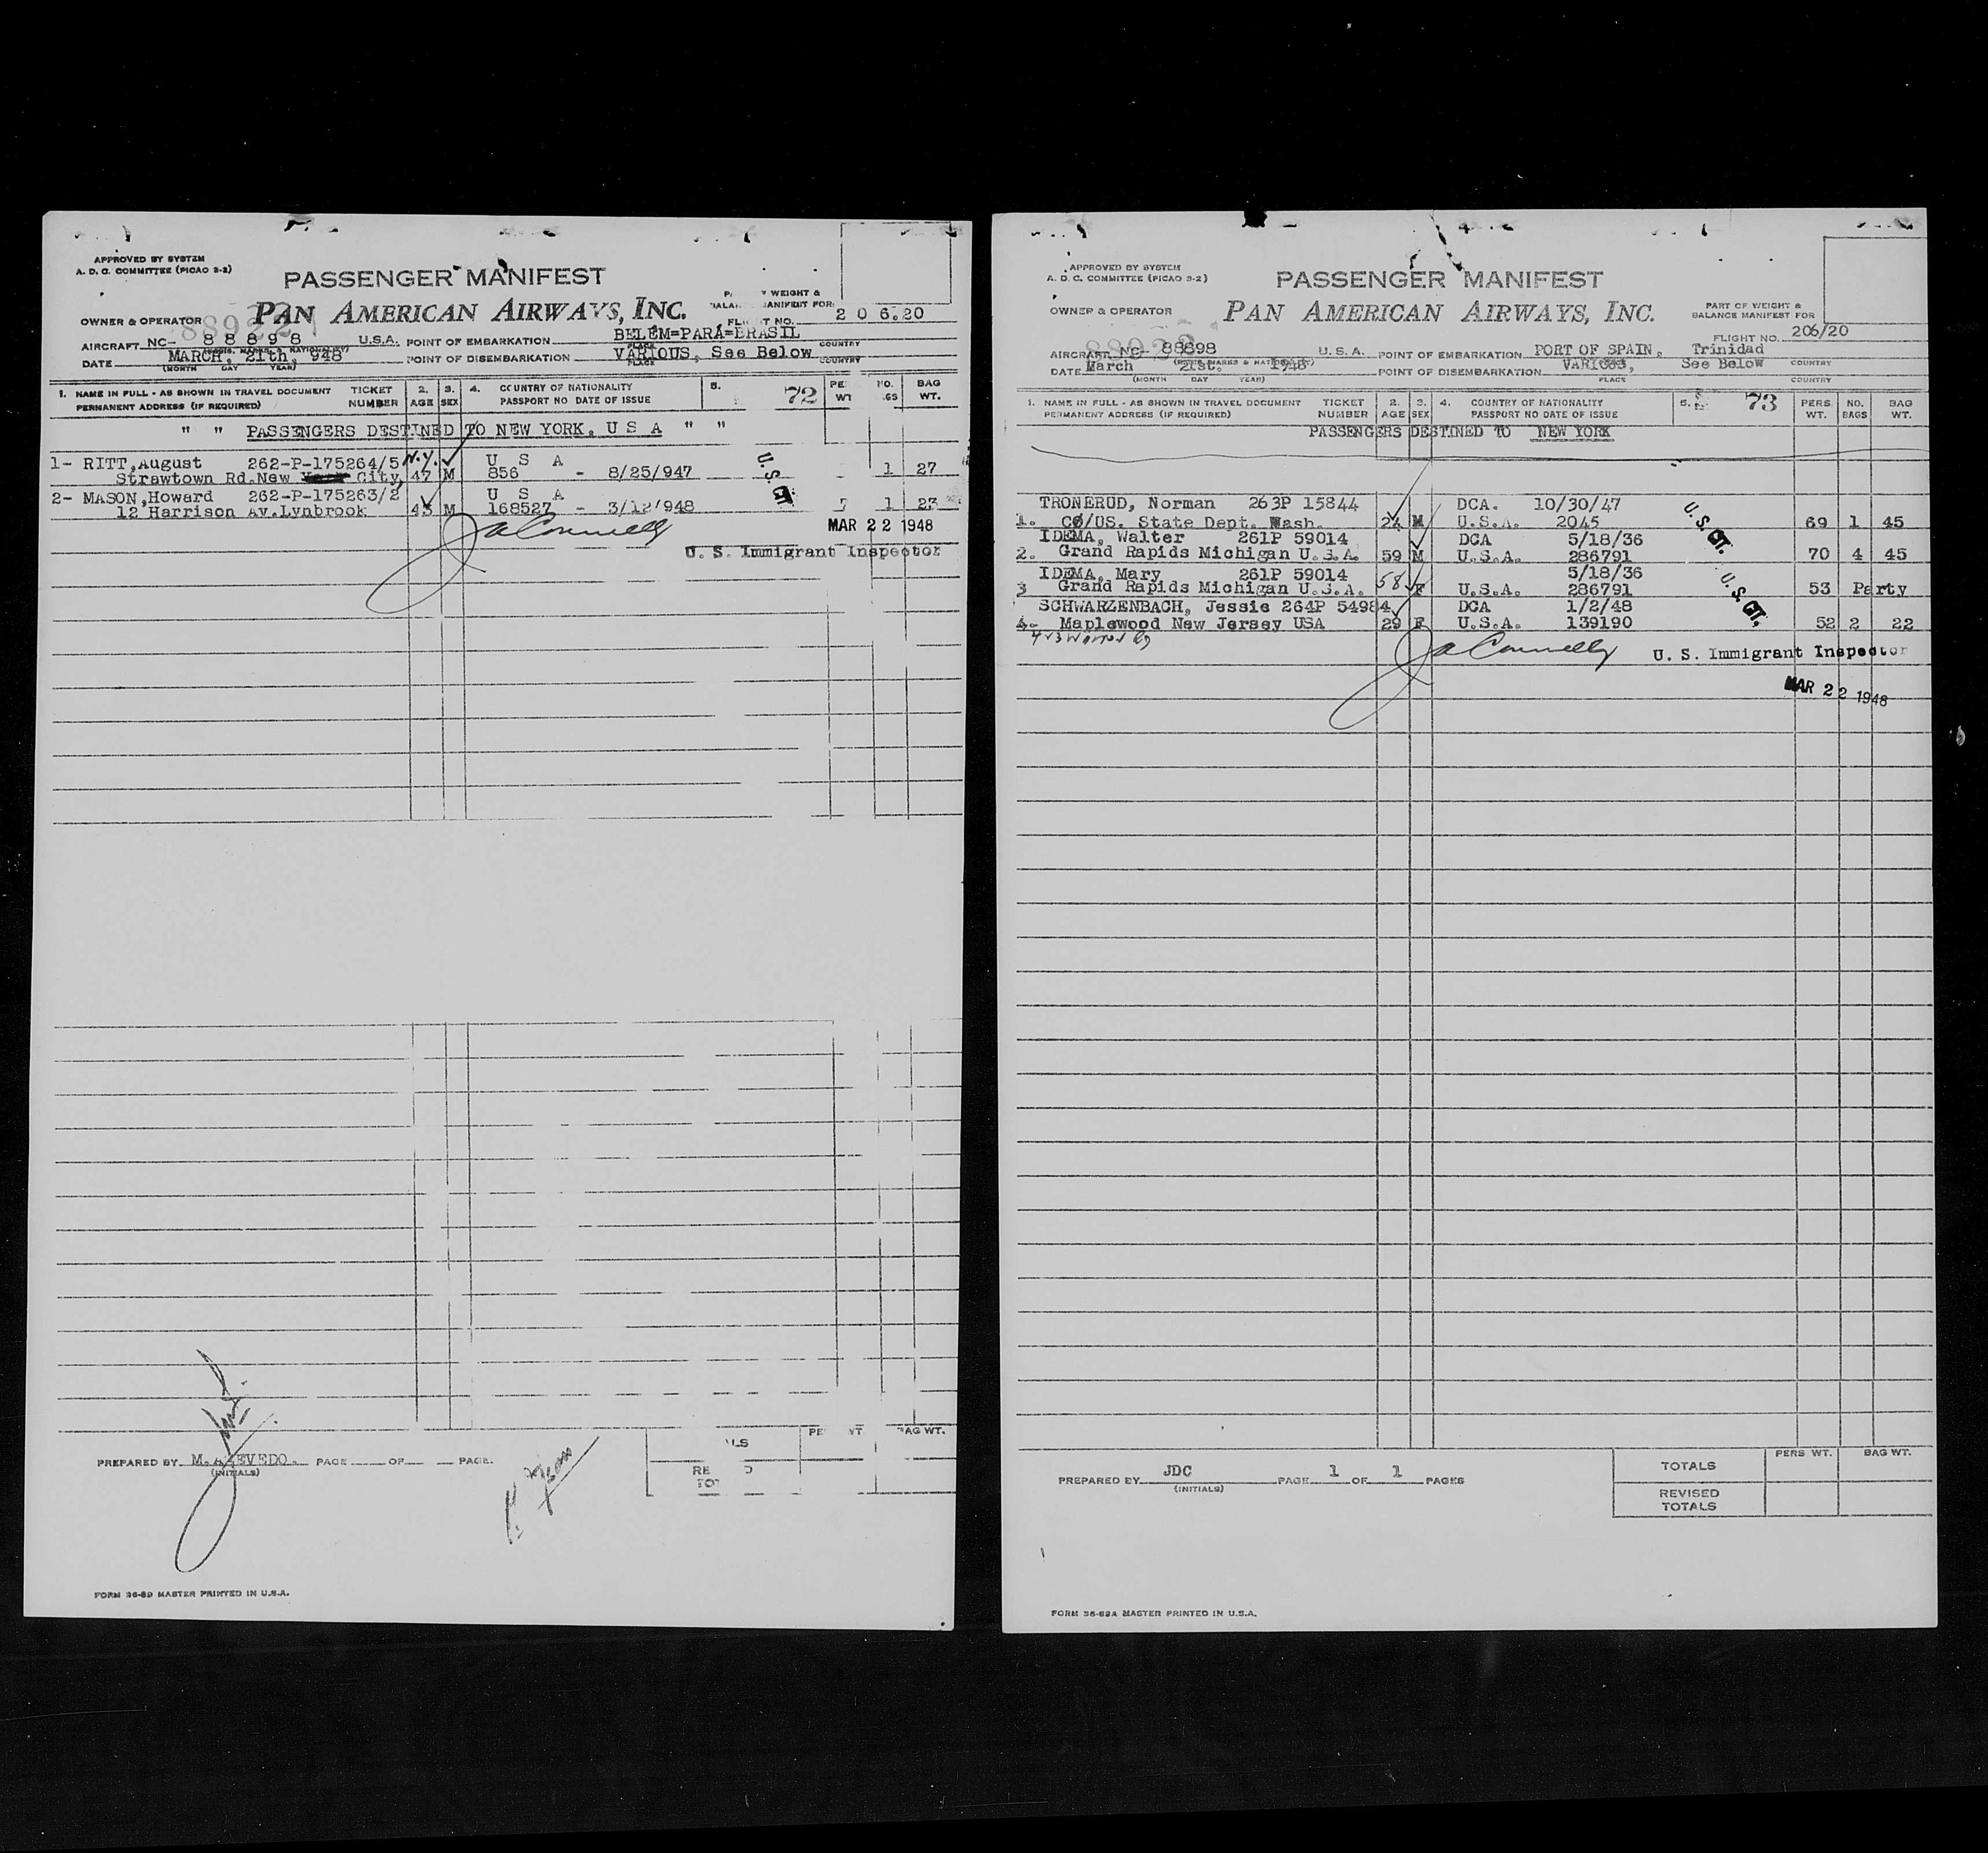 APPROVED BY SYSTEM
A. D. C. COMMITTEE (PICAO S-2)
PASSENGER MANIFEST
PAN AMERICAN AIRWAYS, INC.
WEIGHT &
MANIFEST FOR:
OWNER & OPERATOR
FLIGHT NO. 2 0 6.20
AIRCRAFT NC- 8 8 8 9 8 U.S.A. POINT OF EMBARKATION BELEM=PARÁ=BRASIL
PLACE COUNTRY
DATE MARCH, 21th, 948 POINT OF DISEMBARKATION VARIOUS, See Below
(MONTH DAY YEAR) PLACE COUNTRY
1. NAME IN FULL - AS SHOWN IN TRAVEL DOCUMENT TICKET 2. 3. 4. COUNTRY OF NATIONALITY 5. 72 NO. BAG
PERMANENT ADDRESS (IF REQUIRED) NUMBER AGE SEX PASSPORT NO DATE OF ISSUE WT.
" " PASSENGERS DESTINED TO NEW YORK, U S A " "
1- RITT,August 262-P-175264/5 N.Y. U S A
Strawtown Rd.New City, 47 M 856 - 8/25/947 1 27
2- MASON,Howard 262-P-175263/2 U S A
12 Harrison Av.Lynbrook 43 M 168527 - 3/12/948 1 23
U.S. CT.
MAR 22 1948
JaConnelly
U. S. Immigrant Inspector
PREPARED BY M. AZEVEDO. PAGE OF PAGE.
(INITIALS)
BAG WT.
FORM 36-89 MASTER PRINTED IN U.S.A.
APPROVED BY SYSTEM
A. D. C. COMMITTEE (PICAO S-2)
PASSENGER MANIFEST
PAN AMERICAN AIRWAYS, INC.
PART OF WEIGHT &
BALANCE MANIFEST FOR
OWNER & OPERATOR
FLIGHT NO. 206/20
AIRCRAFT NC- 88898 U.S.A. POINT OF EMBARKATION PORT OF SPAIN, Trinidad
COUNTRY
DATE March 21st. 1948 POINT OF DISEMBARKATION VARIOUS, See Below
(MONTH DAY YEAR) PLACE COUNTRY
1. NAME IN FULL - AS SHOWN IN TRAVEL DOCUMENT TICKET 2. 3. 4. COUNTRY OF NATIONALITY 5. 73 PERS. NO. BAG
PERMANENT ADDRESS (IF REQUIRED) NUMBER AGE SEX PASSPORT NO DATE OF ISSUE WT. BAGS WT.
PASSENGERS DESTINED TO NEW YORK
TRONERUD, Norman 263P 15844 DCA. 10/30/47
1. CØ/US. State Dept. Wash. 24 M U.S.A. 2045 69 1 45
IDEMA, Walter 261P 59014 DCA 5/18/36
2. Grand Rapids Michigan U.S.A. 59 M U.S.A. 286791 70 4 45
IDEMA, Mary 261P 59014 5/18/36
3 Grand Rapids Michigan U.S.A. 58 F U.S.A. 286791 53 Party
SCHWARZENBACH, Jessie 264P 54984 DCA 1/2/48
4. Maplewood New Jersey USA 29 F U.S.A. 139190 52 2 22
U.S. CT.
U.S. CT.
JaConnelly
U. S. Immigrant Inspector
MAR 22 1948
PREPARED BY JDC PAGE 1 OF 1 PAGES
(INITIALS)
PERS WT. BAG WT.
TOTALS
REVISED
TOTALS
FORM 36-89A MASTER PRINTED IN U.S.A.